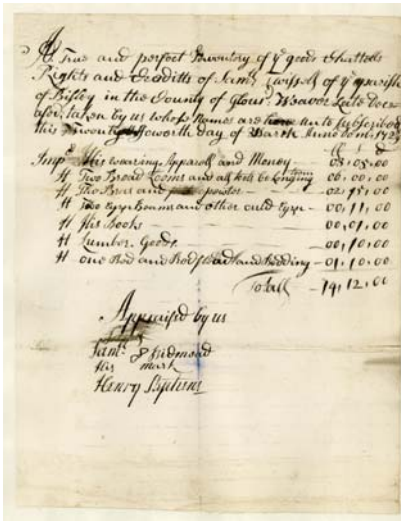 A True and perfect Inventory of ye goods Chattells
Rights and Creditts of Samll Twissell of ye parish
of Bisley in the County of Glouc. Weaver Late Dece
ased, taken by us whose names are here unto Subscribed
this Twenty Foworth day of March Anno Dom. 172
Imps His wearing Apparell and Money - 03-05-00
It Two Broad Looms and all tools belonging 06-00-00
It The Bras and pewter - 02-15-00
It Two and other ould - 00-11-00
It His Books - 00-01-00
It Lumber Goods - 00-10-00
It one Bed and Bedstead and bedding - 01-10-00
Totall - 14-12-00
Appraised by us
Samll
His mark
Henry Stephens